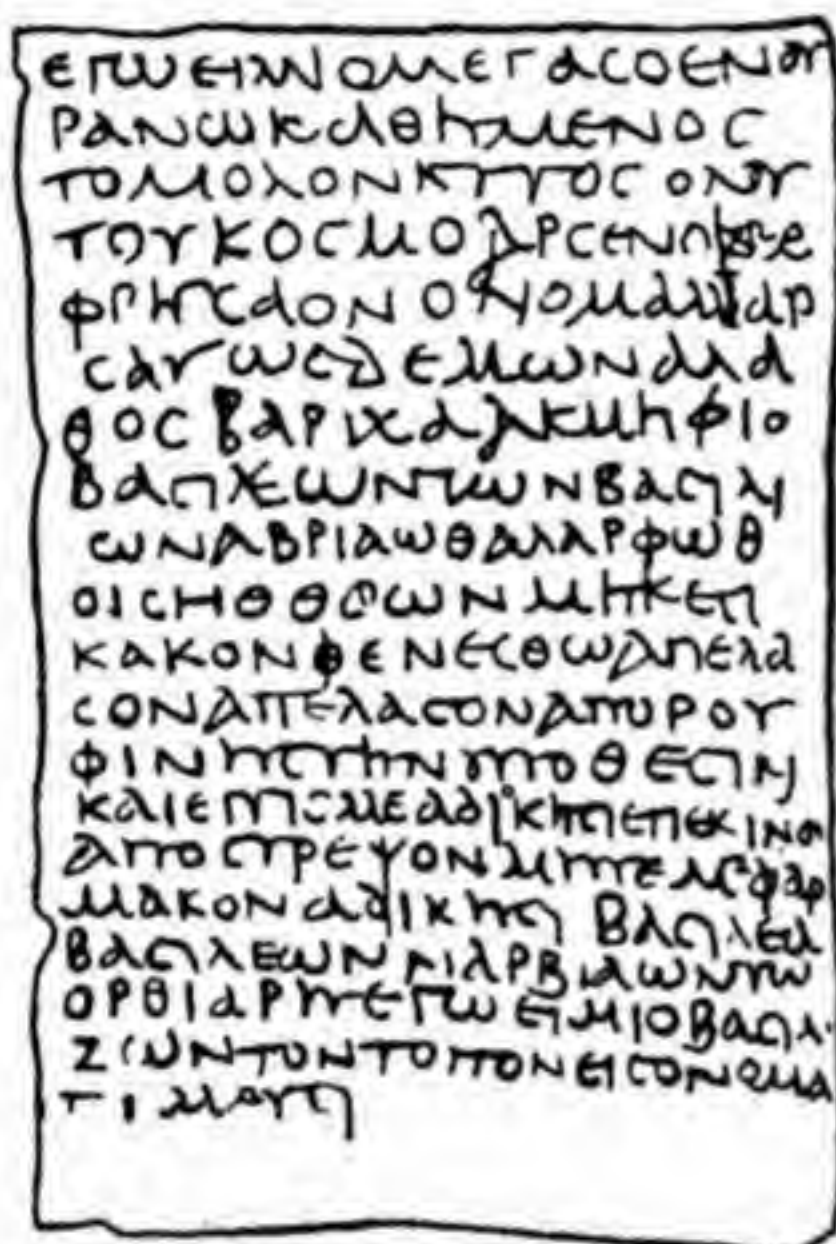 ΕΓΩΕΙΜΙΟΜΕΓΑCΟΕΝΟΥ
ΡΑΝΩΚΑΘΗΜΕΝΟC
ΤΟΜΟΛΟΝΚΥΤΟCΟΛΟΥ
ΤΟΥΚΟCΜΟΥΑΡCΕΝΟ
ΦΡΗCΑΟΝΟ ΝΟΜΑΜΙΑΡ
CΑΥΩCΔΕΜΩΝΑΓΑ
ΘΟCΒΑΡΙΧΑΑΚΜΗΦΙΟ
ΒΑCΙΛΕΩΝΤΩΝΒΑCΙΛΙ
ΩΝΑΒΡΙΑΩΘΑΛΑΡΦΩΘ
ΟΙCΗΘΘCΩΝΜΗΚΕΤΙ
ΚΑΚΟΝΦΕΝΕCΘΩΑΠΕΛΑ
CΟΝΑΠΕΛΑCΟΝΑΠΥΡΟΥ
ΦΙΝΗCΤΗΝΥΠΟΘΕCΙΝ
ΚΑΙΕΠΙCΜΕΑΔΙΚΗCΙΕΠΕΚΙΝΑ
ΑΠΟCΤΡΕΨΟΝΜΗΤΕΜΕΦΑΡ
ΜΑΚΟΝΑΔΙΚΗCΙ ΒΑCΙΛΕΥ
ΒΑCΙΛΕΩΝ ΑΡΒΙΑΩΝΥΩ
ΟΡΘΙΑΡΗΤΕΓΩΕΙΜΙΟΒΑCΙΛ
ΖΩΝΤΟΝΤΟΠΟΝΕΙCΟΝΟΜΑ
ΤΙΜΟΥΤΙ